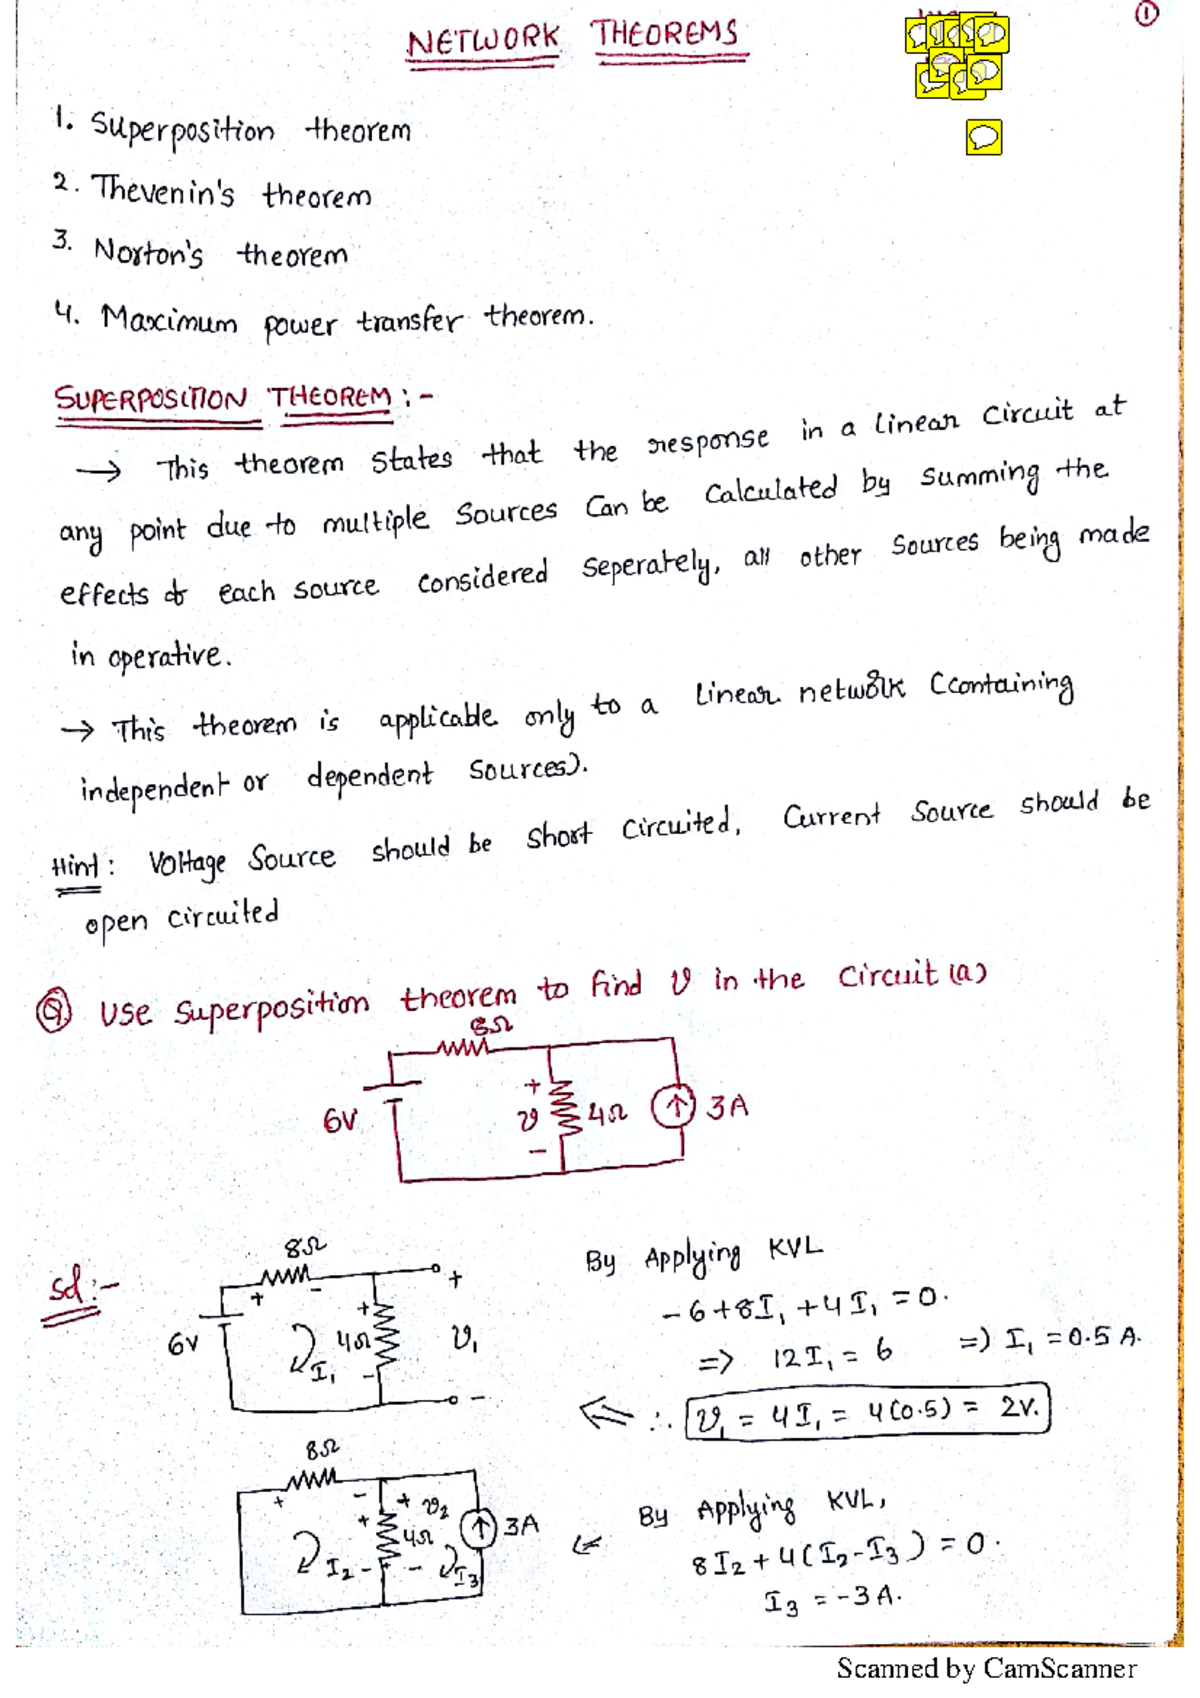 NETWORK THEOREMS
1
1. Superposition theorem
2. Thevenin's theorem
3. Norton's theorem
4. Maximum power transfer theorem.
SUPERPOSITION THEOREM :-
→ This theorem states that the response in a linear circuit at
any point due to multiple sources can be calculated by summing the
effects of each source considered seperately, all other sources being made
in operative.
→ This theorem is applicable only to a linear network (containing
independent or dependent sources).
Hint : Voltage source should be short circuited, current source should be
open circuited
Q Use superposition theorem to find v in the circuit (a)
8Ω
6V
+
v
-
4Ω
3A
Sol :-
8Ω
+ -
6V
I₁
+
4Ω
-
+
v₁
-
By Applying KVL
-6+8I₁+4I₁=0.
=> 12I₁ = 6 => I₁ = 0.5 A.
∴ v₁ = 4I₁ = 4(0.5) = 2V.
8Ω
+ -
I₂
+
4Ω
-
+ v₂
-
I₃
3A
By Applying KVL,
8I₂+4(I₂-I₃) = 0.
I₃ = -3A.
Scanned by CamScanner